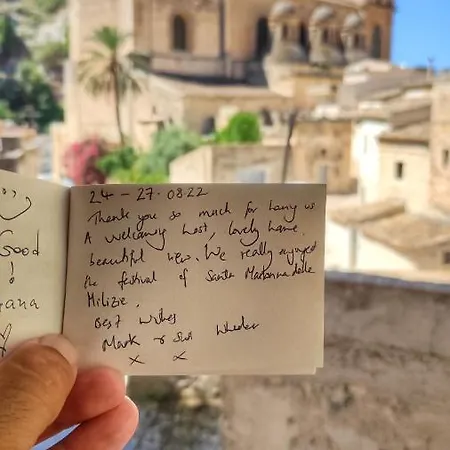 Good
!
24 - 27. 08.22
Thank you so much for having us
A welcoming host, lovely home,
beautiful view. We really enjoyed
the festival of Santa Madonna delle
Milizie.
Best wishes
Mark & Wheeler
x x